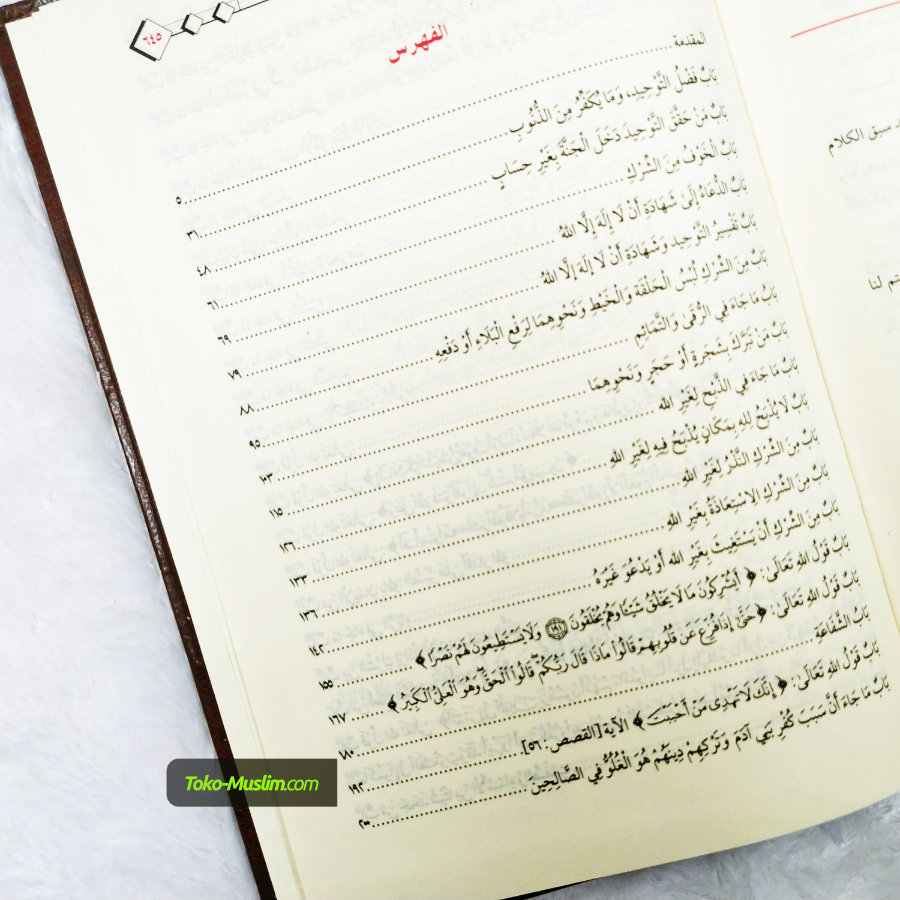 ٦٤٥
الفهرس
المقدمة ........ ٥
بَابُ فَضْلُ التَّوْحِيدِ، وَمَا يُكَفِّرُ مِنَ الذُّنُوبِ ........ ٣١
بَابُ مَنْ حَقَّقَ التَّوْحِيدَ دَخَلَ الْجَنَّةَ بِغَيْرِ حِسَابٍ ........ ٤٨
بَابُ الْخَوْفُ مِنَ الشِّرْكِ ........ ٦١
بَابُ الدُّعَاءُ إِلَى شَهَادَةِ أَنْ لَا إِلَهَ إِلَّا اللهُ ........ ٦٩
بَابُ تَفْسِيرُ التَّوْحِيدِ وَشَهَادَةِ أَنْ لَا إِلَهَ إِلَّا اللهُ ........ ٧٩
بَابُ مِنَ الشِّرْكِ لُبْسُ الْحَلْقَةِ وَالْخَيْطِ وَنَحْوِهِمَا لِرَفْعِ الْبَلَاءِ أَوْ دَفْعِهِ ........ ٨٨
بَابُ مَا جَاءَ فِي الرُّقَى وَالتَّمَائِمِ ........ ٩٥
بَابُ مَنْ تَبَرَّكَ بِشَجَرَةٍ أَوْ حَجَرٍ وَنَحْوِهِمَا ........ ١٠٣
بَابُ مَا جَاءَ فِي الذَّبْحِ لِغَيْرِ اللهِ ........ ١١٥
بَابُ لَا يُذْبَحُ لِلهِ بِمَكَانٍ يُذْبَحُ فِيهِ لِغَيْرِ اللهِ ........ ١٢٦
بَابُ مِنَ الشِّرْكِ النَّذْرُ لِغَيْرِ اللهِ ........ ١٣٣
بَابُ مِنَ الشِّرْكِ الِاسْتِعَاذَةُ بِغَيْرِ اللهِ ........ ١٣٦
بَابُ مِنَ الشِّرْكِ أَنْ يَسْتَغِيثَ بِغَيْرِ اللهِ أَوْ يَدْعُوَ غَيْرَهُ ........ ١٤٢
بَابُ قَوْلُ اللهِ تَعَالَى: ﴿ أَيُشْرِكُونَ مَا لَا يَخْلُقُ شَيْئًا وَهُمْ يُخْلَقُونَ ۝١٩١ وَلَا يَسْتَطِيعُونَ لَهُمْ نَصْرًا ﴾ ........ ١٥٥
بَابُ قَوْلُ اللهِ تَعَالَى: ﴿ حَتَّى إِذَا فُزِّعَ عَنْ قُلُوبِهِمْ قَالُوا مَاذَا قَالَ رَبُّكُمْ قَالُوا الْحَقَّ وَهُوَ الْعَلِيُّ الْكَبِيرُ ﴾ ........ ١٦٧
بَابُ الشَّفَاعَةِ ........ ١٨٠
بَابُ قَوْلُ اللهِ تَعَالَى: ﴿ إِنَّكَ لَا تَهْدِي مَنْ أَحْبَبْتَ ﴾ الآية [القصص: ٥٦] ........ ١٩٢
بَابُ مَا جَاءَ أَنَّ سَبَبَ كُفْرِ بَنِي آدَمَ وَتَرْكِهِمْ دِينَهُمْ هُوَ الْغُلُوُّ فِي الصَّالِحِينَ ........ ٢٠٠
سبق الكلام
لنا
Toko-Muslim.com